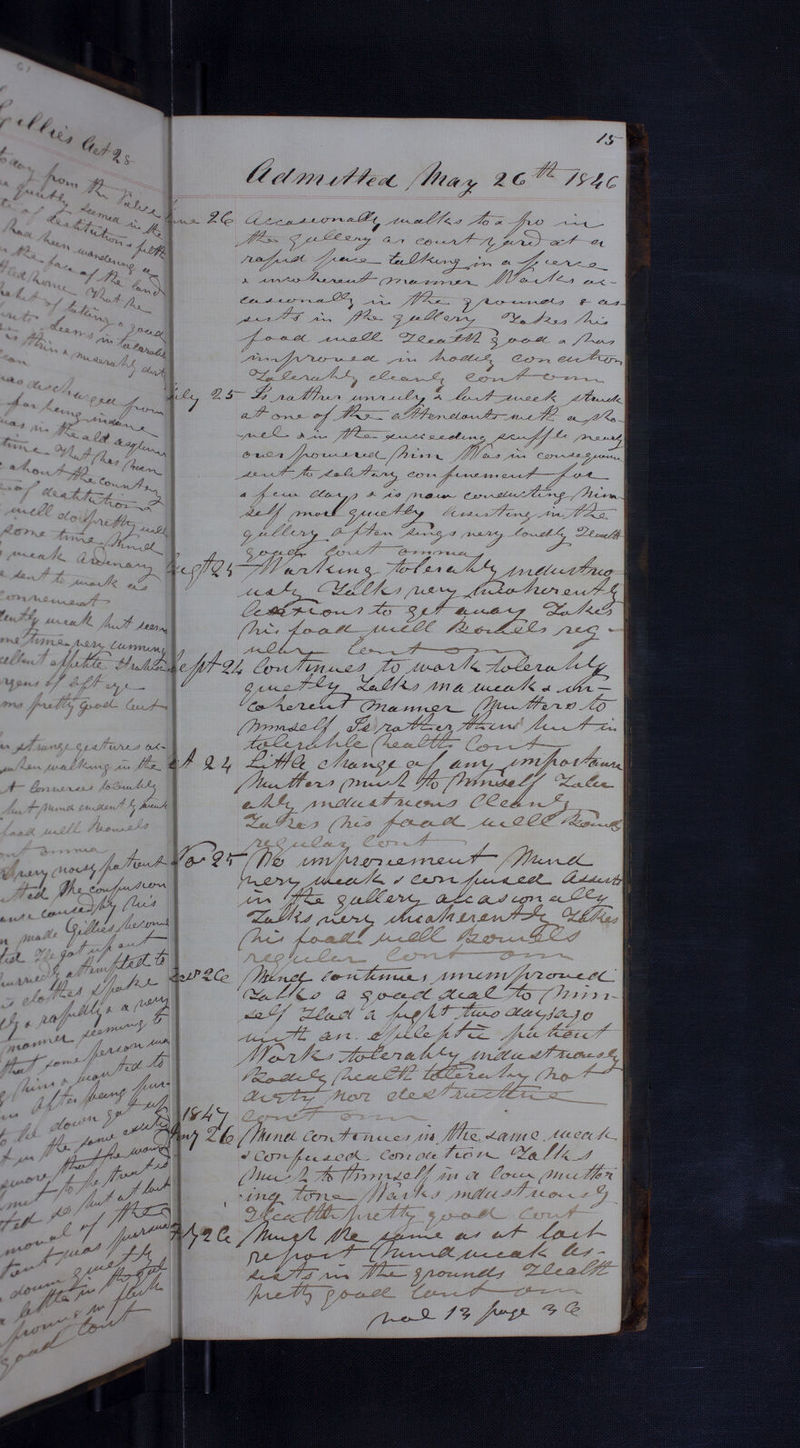 Gillies Aet 28
today from the
quietly seemed in the
of destitution & filth
had been wandering
the face of the land
home That he
habit of taking a good
seems
is thin & miserably dirty
was discharged from
for being insane
was in the old asylum
time That has been
about the country
of destitution
will do pretty well
some time Mind
weak Ordinary
sent to work as
weak but seems
sometimes very cunning
excellent appetite
pretty good Cont
strange gestures oc-
when walking in the
Converses
but mind evidently weak
food well Bowels
Cont omnia
A very noisy patient
The confusion
caused by his
made Gillies become
He got up out
attempted to
clothes spoke
& rapidly & a very
manner seeming to
that some person was
him & wanted to
After being
lie down got up
in the same
swore that he would
not to be treated
so but at last
removal of the
patient was
down quietly
a little in the
in flesh
good Cont
15
Admitted May 26th 1846
June 26 Occasionally walks to & fro in
the gallery or court yard at a
rapid pace talking in a fierce
& incoherent manner Works oc-
casionally in the grounds & as-
sists in the gallery Takes his
food well Health good & has
improved in bodily condition
Tolerably cleanly Cont om
July 25 Is rather unruly & last week struck
at one of the attendants with a sho-
vel & in the succeeding scuffle nearly
overpowered him Was in consequence
sent to solitary confinement for
a few days & is now conducting him-
self more quietly assisting in the
gallery often sings very loudly Health
good Cont omnia
Augt 25 Working tolerably industrio
usly Talks very incoherently
to get away Takes
his food well Bowels reg-
ular Cont om
Sept 24 Continues to work tolerably
quietly Talks in a weak & in-
coherent manner Mutters to
himself Is rather thin but in
tolerable health Cont
Oct 24 Little change of any importance
Mutters much to himself Toler
ably industrious Cleanly
Takes his food well Bowels
regular Cont
Nov 25 No improvement Mind
very weak & confused Assists
in the gallery occasionally
Talks very incoherently Takes
his food well Bowels
regular Cont om
Decr 26 Mind continues unimproved
Talks a good deal to him-
self Had a fight two days ago
with an epileptic patient
Works tolerably industriously
Bodily health tolerable Not
dirty nor destructive
1847 Cont om
Jany 26 Mind continues in the same weak
& confused condition Talks
much to himself in a low mutter
ing tone Works industriously
Health pretty good Cont
Feby 26 Much the same as at last
report Mind weak As-
sists in the grounds Health
pretty good Cont om
vol 13 page 36